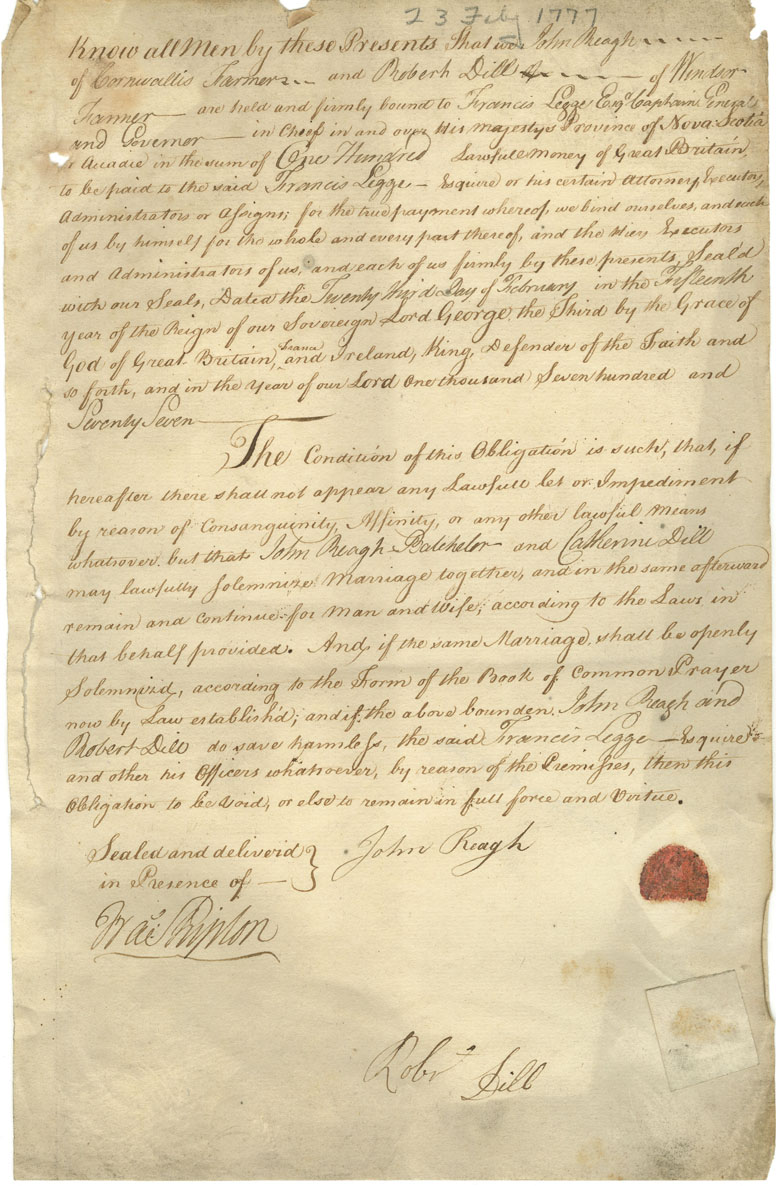 23 Feby 1777
Know all Men by these Presents That we John Reagh
of Cornwallis Farmer and Robert Dill of Windsor
Farmer are held and firmly bound to Francis Legge Esqr Captain General
and Governor in Chief in and over His Majesty's Province of Nova-Scotia
or Accadie in the sum of One Hundred Lawfull Money of Great Britain
to be paid to the said Francis Legge Esquire or his certain Attorney, Executors,
Administrators or Assigns; for the true payment whereof, we bind ourselves, and each
of us by himself for the whole and every part thereof, and the Heirs Executors
and Administrators of us, and each of us firmly by these presents, Seal'd
with our Seals, Dated the Twenty third Day of February in the Fifteenth
Year of the Reign of our Sovereign Lord George the Third by the Grace of
God of Great-Britain, France and Ireland, King, Defender of the Faith and
so forth, and in the Year of our Lord One thousand Seven hundred and
Seventy Seven
The Condition of this Obligation is such, that, if
hereafter there shall not appear any Lawfull let or Impediment
by reason of Consanguinity, Affinity, or any other lawful means
whatsover, but that John Reagh Batchelor and Catherine Dill
may lawfully solemnize Marriage together, and in the same afterward
remain and continue for Man and Wife, according to the Laws in
that behalf provided. And, if the same Marriage, shall be openly
Solemnizd, according to the Form of the Book of Common Prayer
now by Law establish'd; and if the above bounden John Reagh and
Robert Dill do save harmless, the said Francis Legge Esquire
and other his Officers whatsoever, by reason of the Premisses, then this
Obligation to be void, or else to remain in full force and Virtue.
Sealed and deliverid
in Presence of
John Reagh
Robt Dill